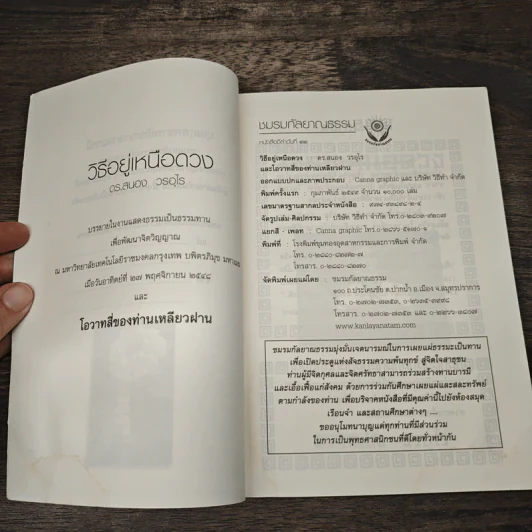 วิธีอยู่เหนือดวง
ดร.สนอง วรอุไร
บรรยายในงานแสดงธรรมเป็นธรรมทาน
เพื่อพัฒนาจิตวิญญาณ
ณ มหาวิทยาลัยเทคโนโลยีราชมงคลกรุงเทพ บพิตรภิมุข
เมื่อวันอาทิตย์ที่ ๒๗ พฤศจิกายน ๒๕๔๘
และ
โอวาทสี่ของท่านเหลียวฝาน
ชมรมกัลยาณธรรม
หนังสือดีลำดับที่
วิธีอยู่เหนือดวง : ดร.สนอง วรอุไร
และโอวาทสี่ของท่านเหลียวฝาน
ออกแบบปกและภาพประกอบ : Canna graphic และ บริษัท วิธีทำ จำกัด
พิมพ์ครั้งแรก : กุมภาพันธ์ ๒๕๔๙ จำนวน ๑๐,๐๐๐ เล่ม
เลขมาตรฐานสากลประจำหนังสือ :
จัดรูปเล่ม-ศิลปกรรม : บริษัท วิธีทำ จำกัด โทร.
แยกสี - เพลท : Canna graphic โทร.
พิมพ์ที่ : โรงพิมพ์ชุมทองอุตสาหกรรมและการพิมพ์ จำกัด
โทร.
โทรสาร.
จัดพิมพ์เผยแผ่โดย : ชมรมกัลยาณธรรม
๑๐๐ ถ.ประโคนชัย ต.ปากน้ำ อ.เมือง จ.สมุทรปราการ
โทร.
โทรสาร. และ
www.kanlayanatam.com
ชมรมกัลยาณธรรมมุ่งมั่นเจตนารมณ์ในการเผยแผ่ธรรมะเป็นทาน
เพื่อเปิดประตูแห่งสัจธรรมความพ้นทุกข์ สู่จิตใจสาธุชน
ท่านผู้มีจิตกุศลและจิตศรัทธาสามารถร่วมสร้างทานบารมี
และเอื้อเฟื้อแก่สังคม ด้วยการร่วมกับศึกษาเผยแผ่และสละทรัพย์
ตามกำลังของท่าน เพื่อบริจาคหนังสือที่มีคุณค่านี้ไปยังห้องสมุด
เรือนจำ และสถานศึกษาต่างๆ ....
ขออนุโมทนาบุญแด่ทุกท่านที่มีส่วนร่วม
ในการเป็นพุทธศาสนิกชนที่ดีโดยทั่วหน้ากัน